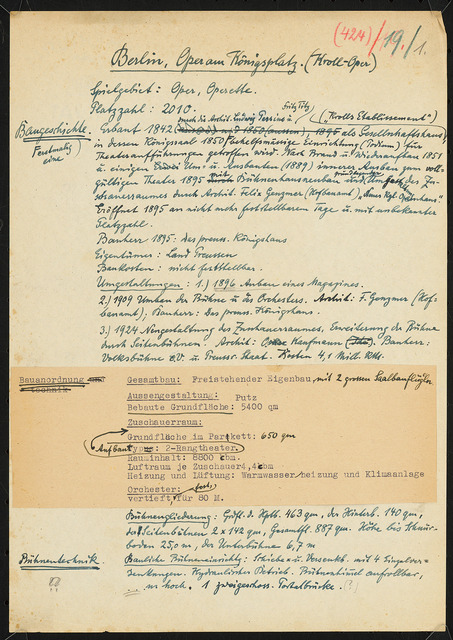 (424)/19./1.
Berlin, Oper am Königsplatz. (Kroll-Oper)
Spielgebiet: Oper, Operette.
Platzzahl: 2010.
Baugeschichte. Erbaut 1842 durch die Archit. Ludwig Persius u. Fritz Titz ("Krolls Etablissement")
als Gesellschaftshaus,
in dessen Königssaal 1850 behelfsmässige Einrichtung (Podium) für
Theateraufführungen getroffen wird. Nach Brand u. Wiederaufbau 1851
u. einigen Um- u. Ausbauten (1889) innerer Ausbau zum voll-
gültigen Theater 1895 Bühnenhausneubau Umbau des Zu-
schauerraumes durch Archit. Felix Genzmer (Hofbauamt) "Neues Kgl. Opernhaus"
Eröffnet 1895 an nicht mehr feststellbarem Tage u. mit unbekannter
Platzzahl.
Bauherr 1895: das preuss. Königshaus
Eigentümer: Land Preussen
Baukosten: nicht feststellbar.
Umgestaltungen: 1.) 1896 Anbau eines Magazines.
2.) 1909 Umbau der Bühne u. des Orchesters. Archit: F. Genzmer (Hof-
bauamt), Bauherr: Das preuss. Königshaus.
3.) 1924 Neugestaltung des Zuschauerraumes, Erweiterung der Bühne
durch Seitenbühnen. Archit: Oskar Kaufmann. Bauherr:
Volksbühne e.V. u. Preuss. Staat. Kosten 4,1 Mill. RM.
Bauanordnung
technik
Gesamtbau: Freistehender Eigenbau mit 2 grossen Saalbauflügeln
Aussengestaltung: Putz
Bebaute Grundfläche: 5400 qm
Zuschauerraum:
Grundfläche im Parkett: 650 qm
Aufbautypus: 2-Rangtheater.
Rauminhalt: 8800 cbm.
Luftraum je Zuschauer 4,4 cbm
Heizung und Lüftung: Warmwasserheizung und Klimaanlage
Orchester: fest,
vertieft, für 80 M.
Bühnengliederung: Grdfl. d. Hptb. 463 qm, der Hinterb. 140 qm,
der Seitenbühnen 2 x 142 qm, Gesamtfl. 887 qm. Höhe bis Schnür-
boden 25,0 m, der Unterbühne 6,7 m
Bühnentechnik Bauliche Bühneneinricht.: Schiebe- u. Versenkb. mit 4 Einzelver-
senkungen. Hydraulischer Betrieb. Bühnenhimmel aufrollbar,
m hoch. 1 zweigeschoss. Portalbrücke. (?)